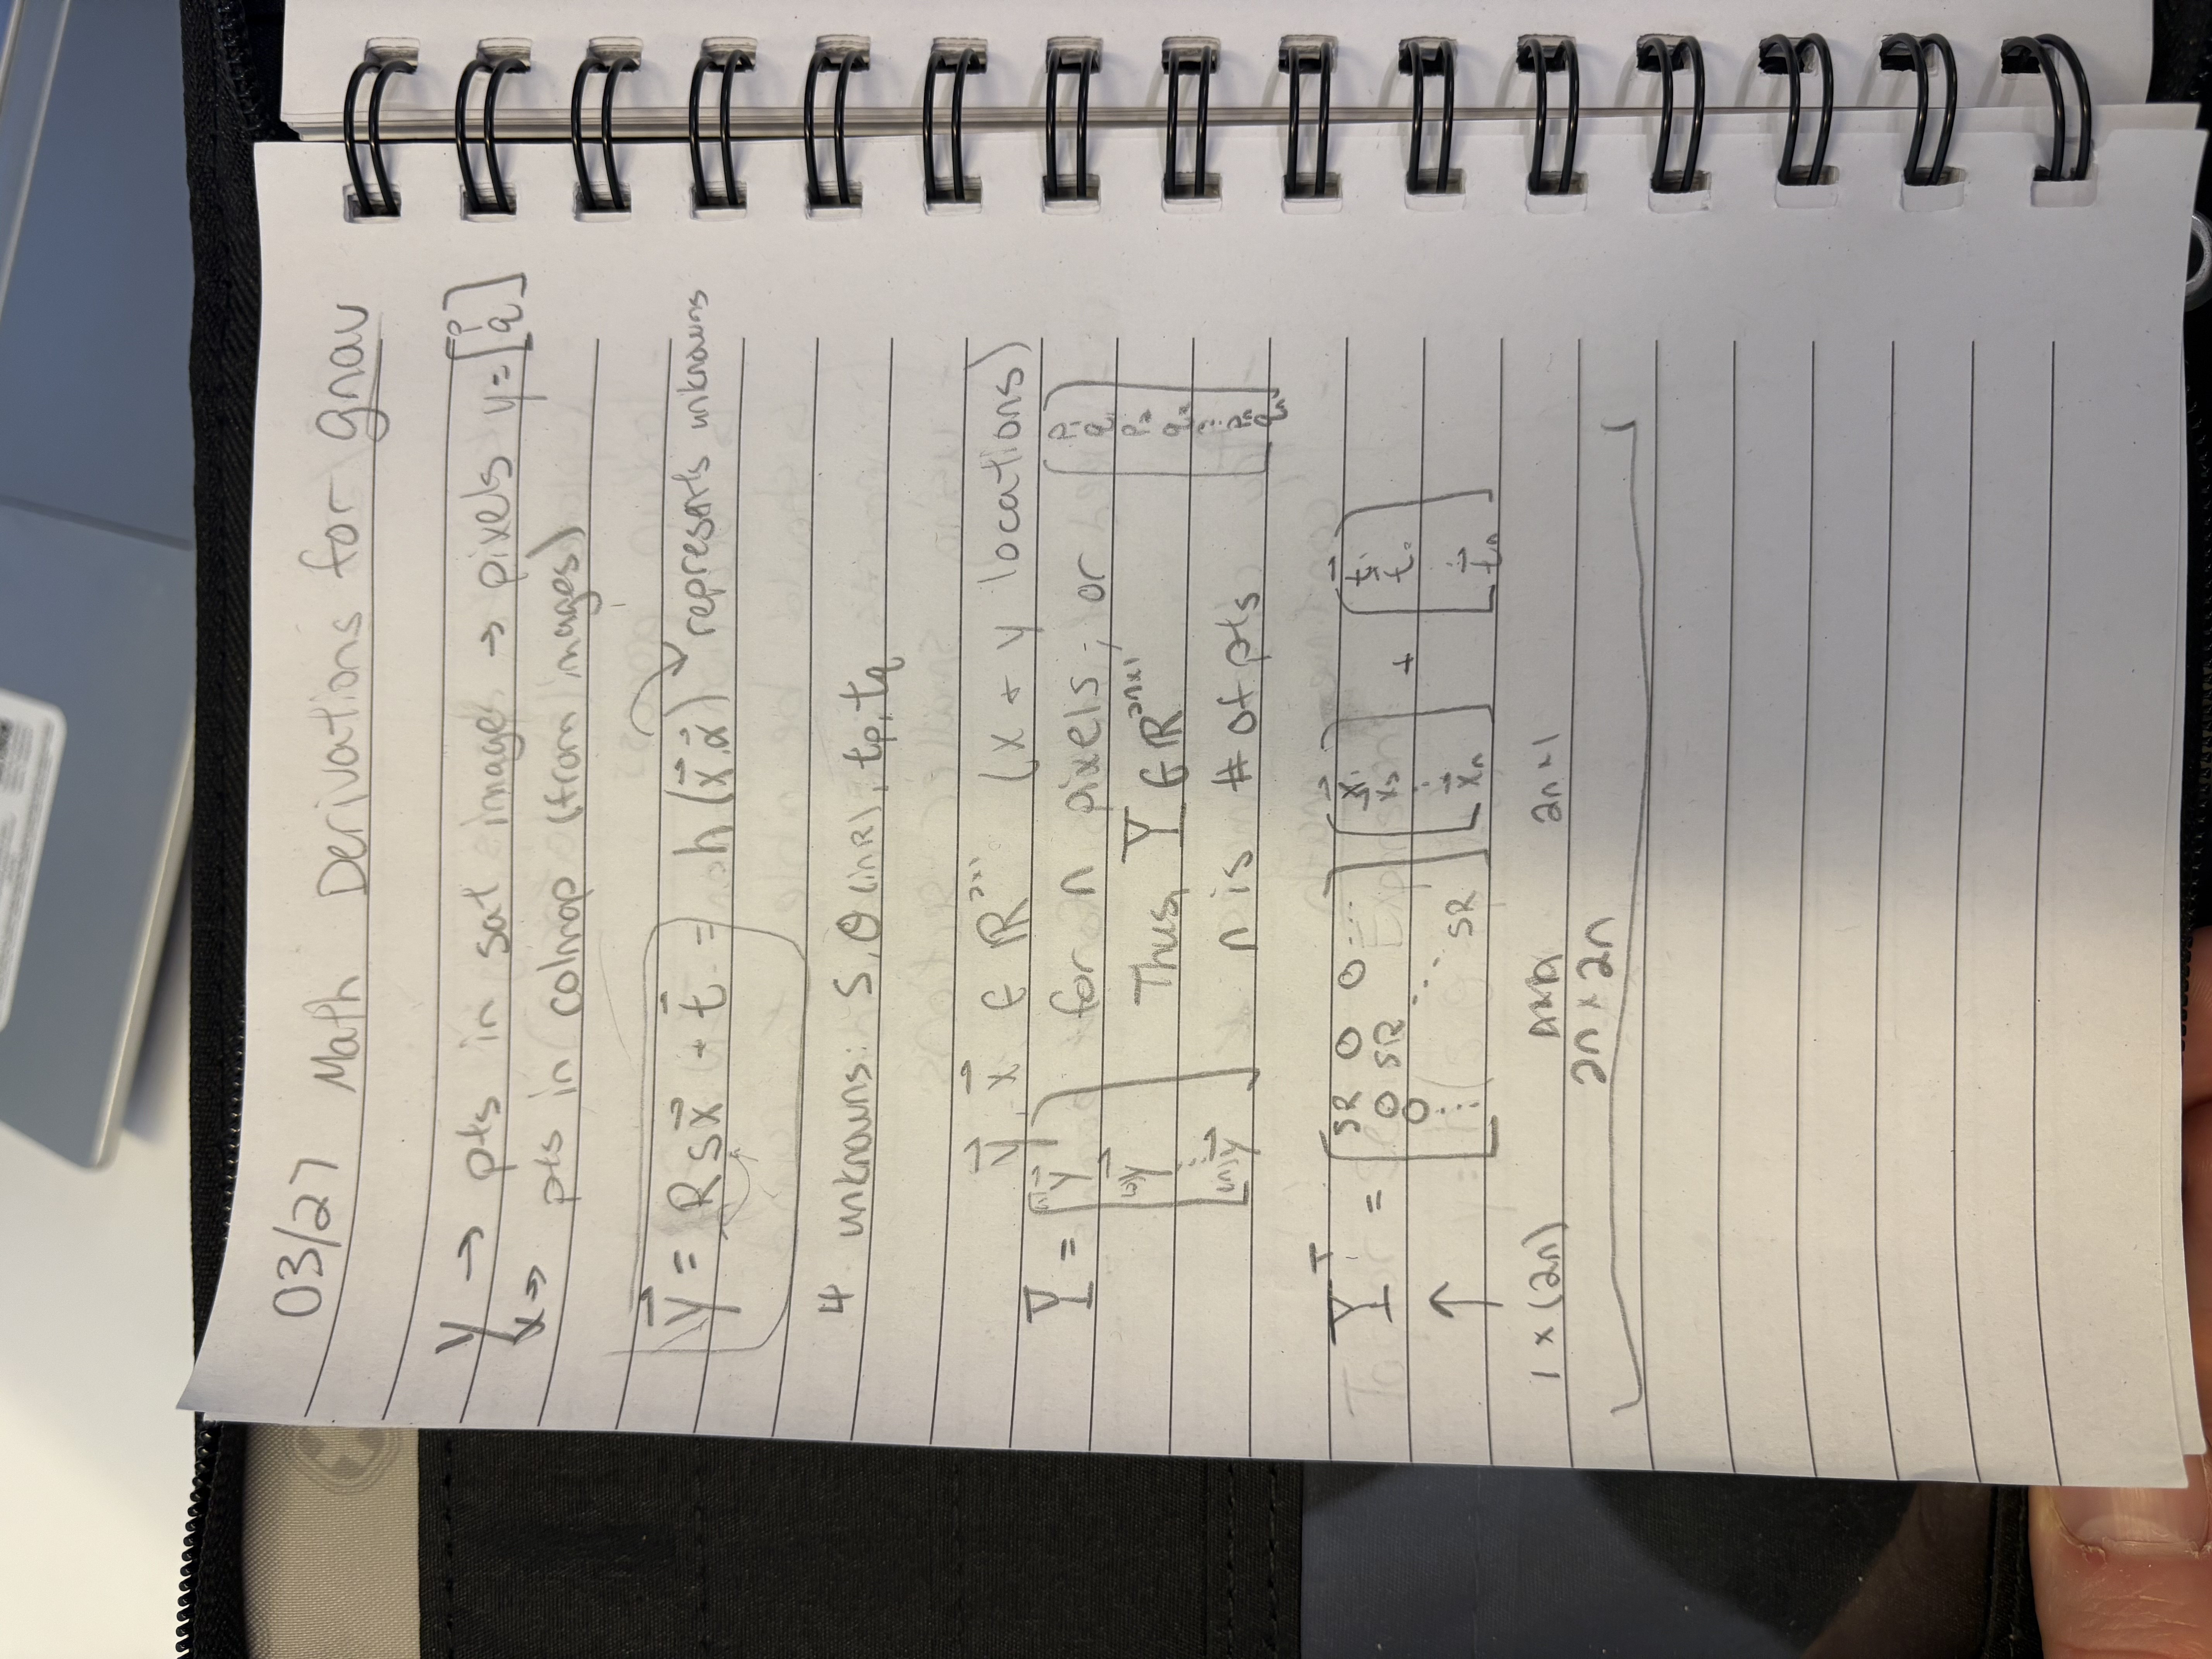 03/27 Math Derivations for gnav
y → pts in sat image → pixels y = [p q]
x → pts in colmap (from images)
y⃗ = R s x⃗ + t⃗ = h(x⃗, α⃗) represents unknowns
4 unknowns: s, θ (in R), tp, tq
y⃗, x⃗ ∈ ℝ^2x1 (x + y locations)
Y = [(1)y⃗ (2)y⃗ ... (n)y⃗] for n pixels, or
Thus, Y ∈ ℝ^2nx1
n is # of pts
Y^T = [SR 0 0 ... 0 SR 0 ⋱ ⋮ SR] [x⃗1 x⃗2 ... x⃗n] + [t⃗1 t⃗2 ... t⃗n]
↑
1 x (2n) nxn 2n x 1
2n x 2n